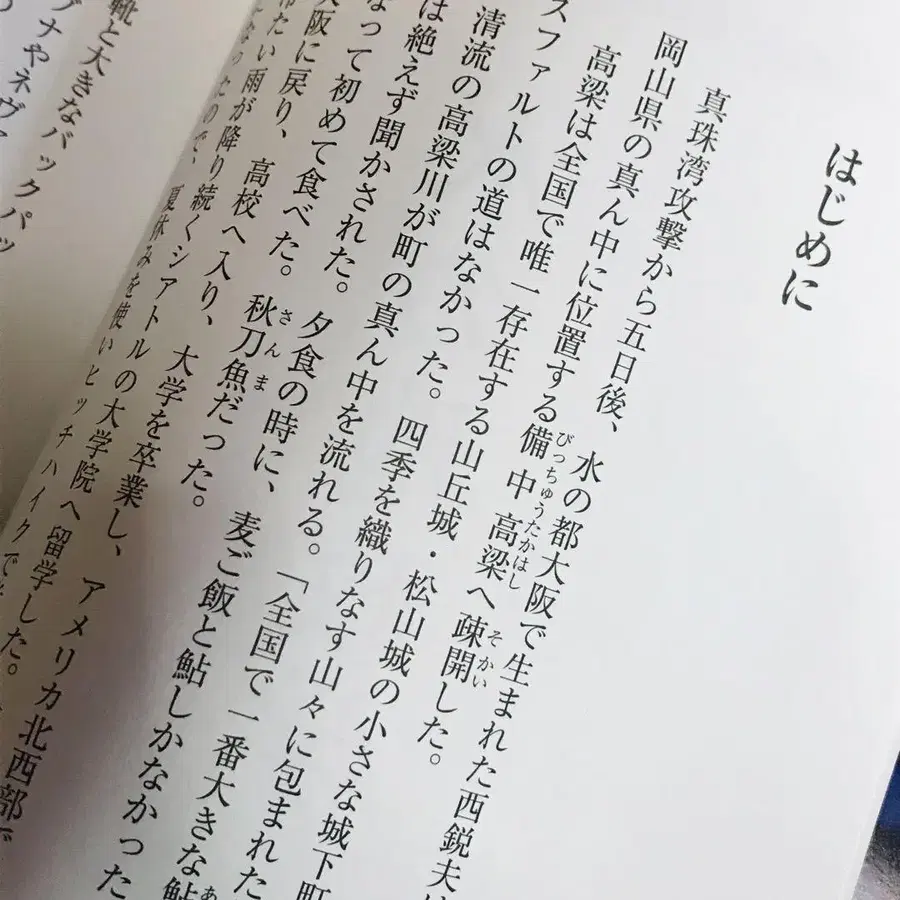 はじめに
真珠湾攻撃から五日後、水の都大阪で生まれた西鋭夫
びっちゅうたかはし そかい
岡山県の真ん中に位置する備中高梁へ疎開した。
高梁は全国で唯一存在する山丘城・松山城の小さな城下町
スファルトの道はなかった。四季を織りなす山々に包まれた
清流の高梁川が町の真ん中を流れる。「全国で一番大きな鮎
は絶えず聞かされた。夕食の時に、麦ご飯と鮎しかなかった
さんま
なって初めて食べた。秋刀魚だった。
阪に戻り、高校へ入り、大学を卒業し、アメリカ北西部で
冷たい雨が降り続くシアトルの大学院へ留学した。
なったので、夏休みを使いヒッチハイクで
靴と大きなバックパッ
グナやネヴァ